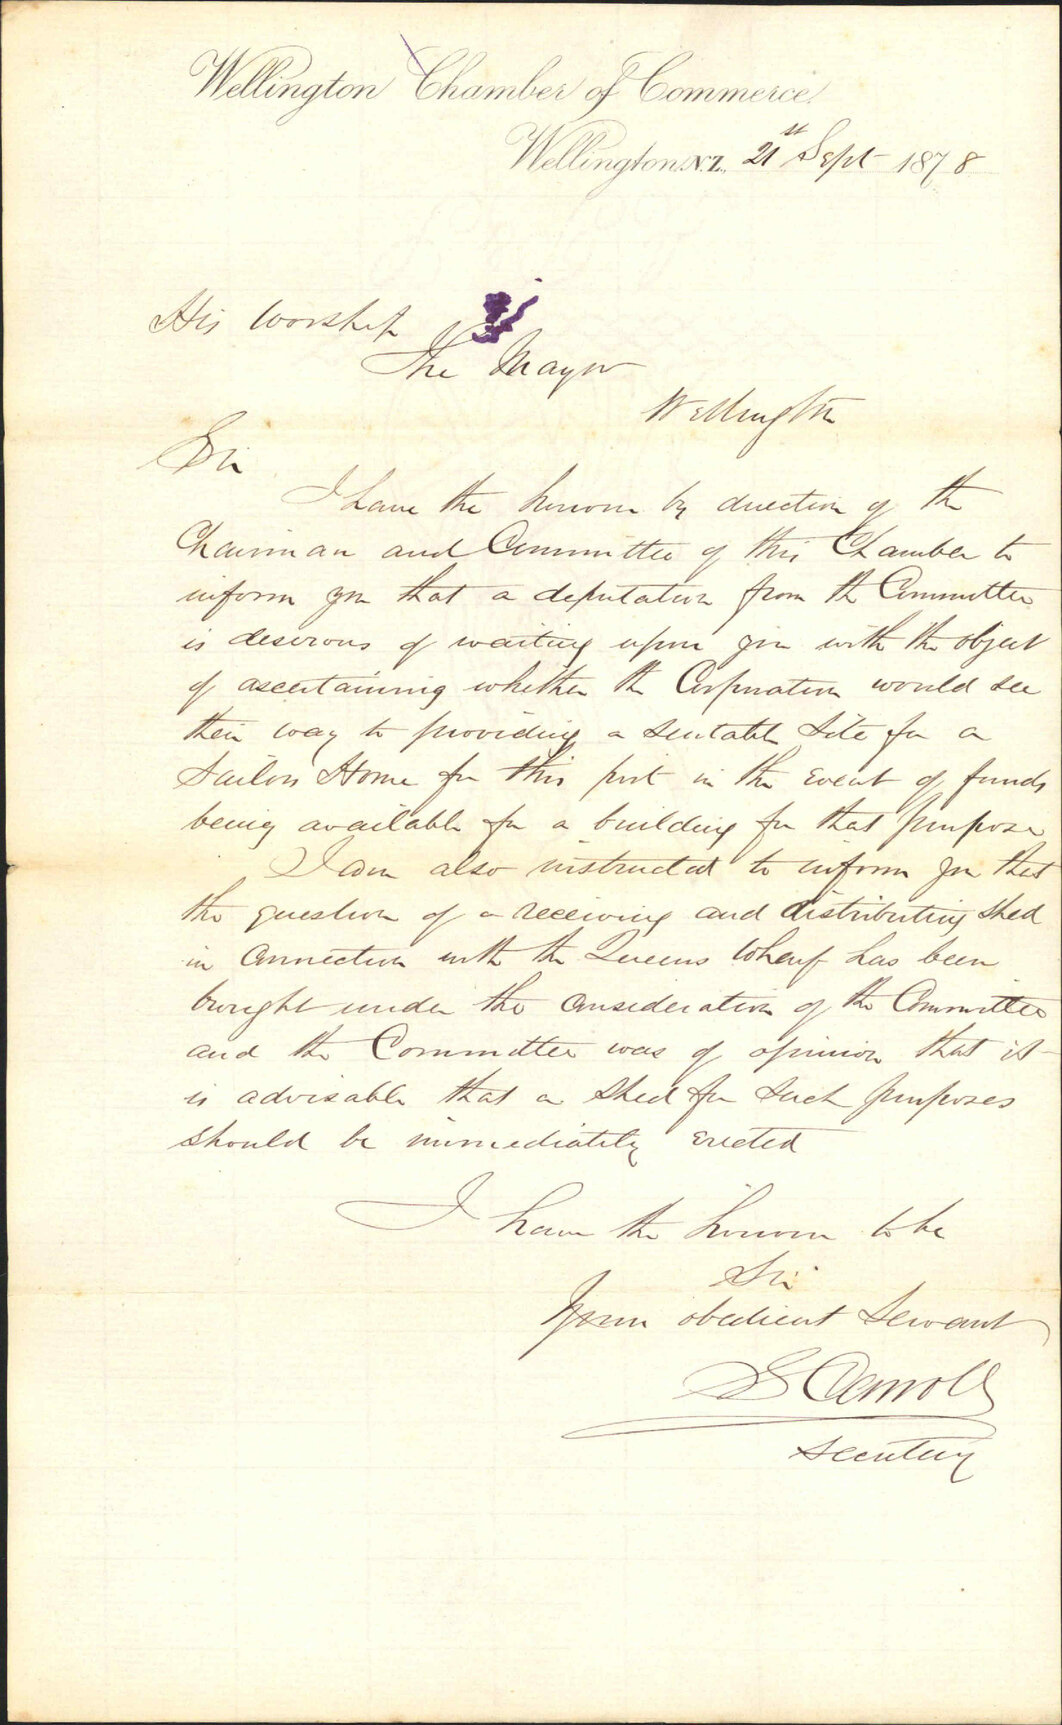 Wellington Chamber of Commerce.
Wellington N.Z., 21st Sept 1878
His Worship
The Mayor
Wellington
Sir
I have the honour by direction of the
Chairman and Committee of this Chamber to
inform you that a deputation from the Committee
is desirous of waiting upon you with the object
of ascertaining whether the Corporation would see
their way to providing a suitable site for a
Sailors Home for this port in the event of funds
being available for a building for that purpose
I am also instructed to inform you that
the question of a receiving and distributing shed
in connection with the Queens Wharf has been
brought under the consideration of the Committee
and the Committee was of opinion that it
is advisable that a shed for such purposes
should be immediately erected
I have the honour to be
Sir
Your obedient Servant
S Carroll
Secretary